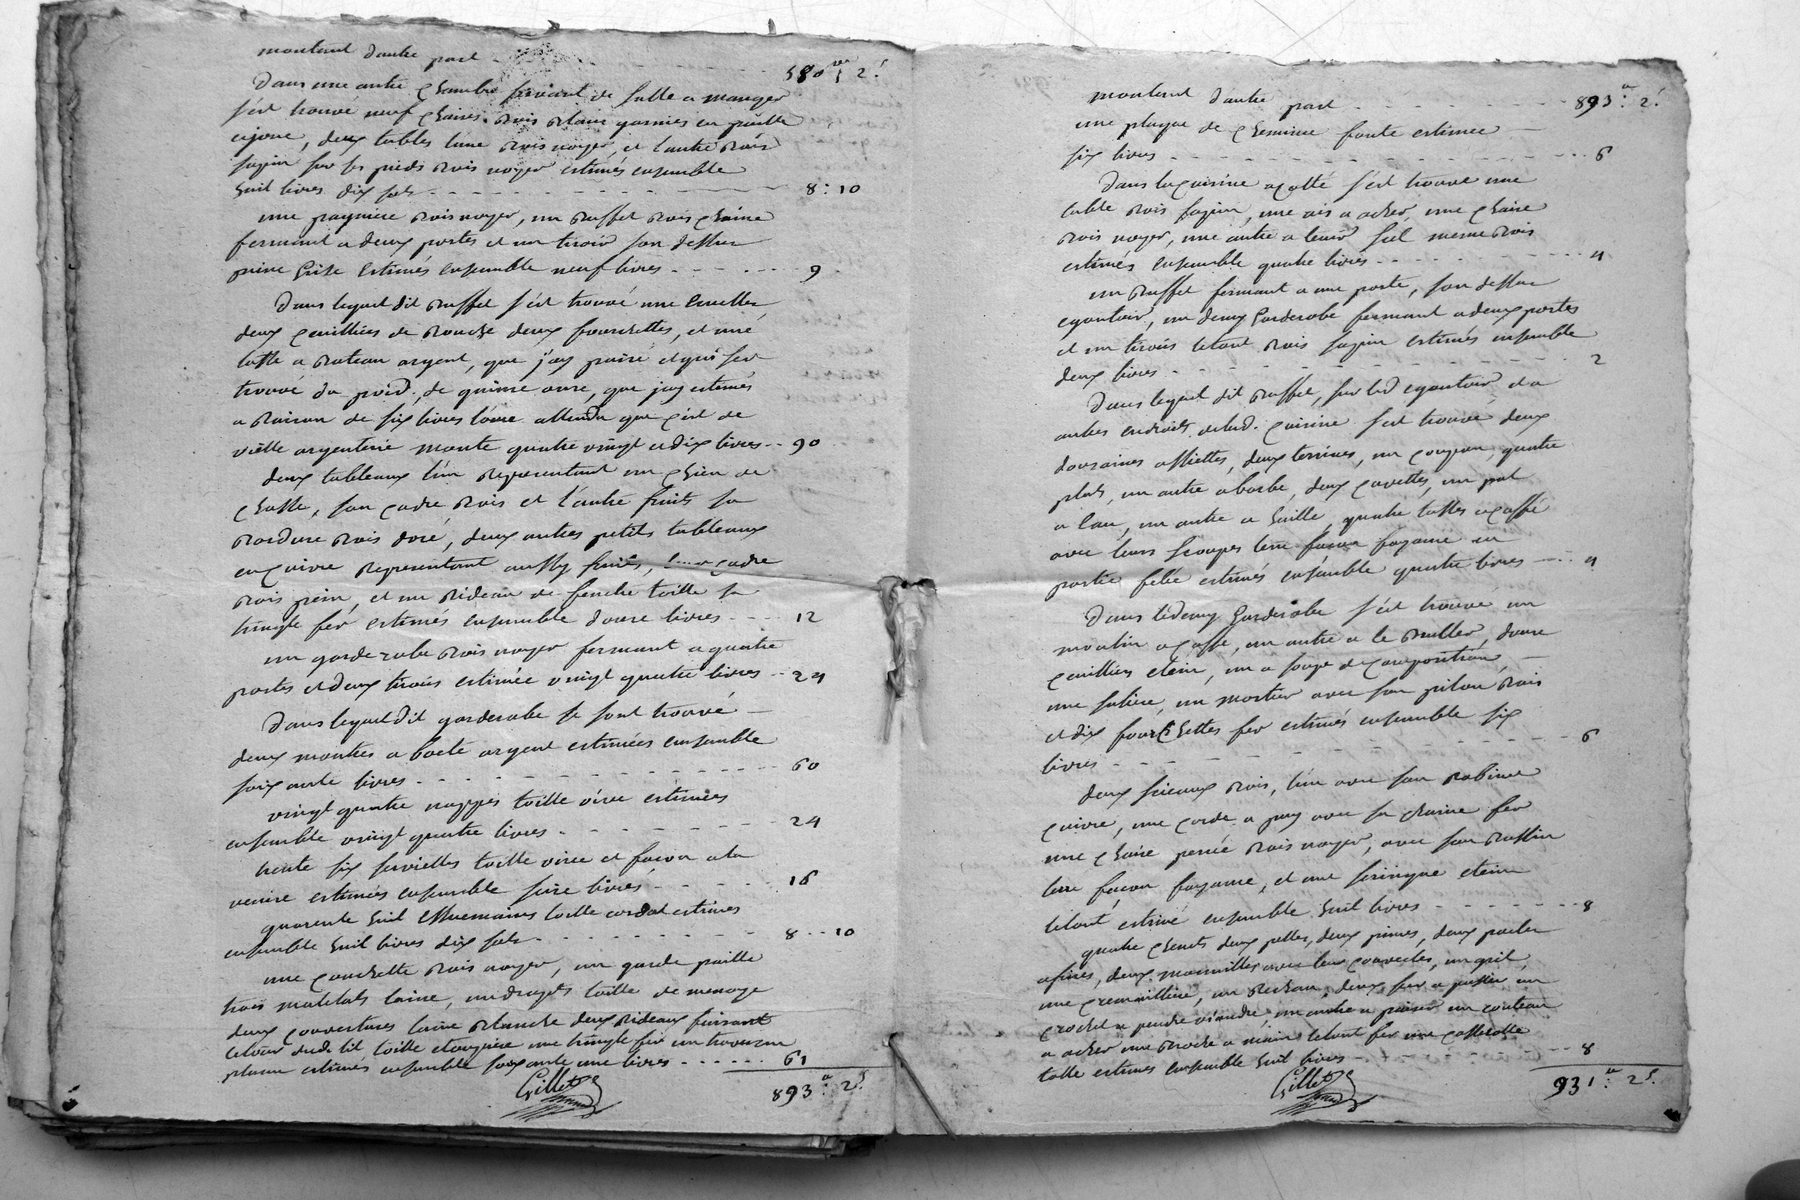 montant d'autre part - - - - - 580 ₶ 2 s
Dans une autre chambre servant de salle a manger
s'est trouvé neuf chaises bois blanc garnies en paille
et jonc, deux tables l'une bois noyer, et l'autre bois
sapin sur ses pieds bois noyer estimés ensemble
huit livres dix sols - - - - - 8 : 10
une pagniere bois noyer, un buffet bois chaine
fermant a deux portes et un tiroir son dessus
pierre grise estimés ensemble neuf livres - - - - 9
Dans lequel dit buffet s'est trouvé une
deux cuillieres de bouche deux fourchettes, et une
tasse a bateau argent, que j'ay peizé et qui s'est
trouvé du poid de quinze once, que jay estimés
a raison de six livres l'once attendu que c'est de
vielle argenterie monte quatre vingt et dix livres - - 90
deux tableaux l'un representant un chien de
chasse, son cadre bois et l'autre fruits sa
bordure bois doré, deux autres petits tableaux
en cuivre representant aussy fruits, leur cadre
bois pein, et un rideau de fenetre toille sa
tringle fer estimés ensemble douze livres - - - 12
un garde robe bois noyer fermant a quatre
portes et deux tiroirs estimée vingt quatre livres - - 24
Dans lequel dit garderobe se sont trouvé
deux montres a boete argent estimées ensemble
soixante livres - - - - - 60
vingt quatre nappes toille estimées
ensemble vingt quatre livres - - - - - 24
trente six serviettes toille et façon a la
venise estimés ensemble seize livres - - - - 16
quarente huit essuemains toille cordat estimés
ensemble huit livres dix sols - - - - - 8 - - 10
une couchette bois noyer, un garde paille
trois matelats laine, un drapts toille de menage
deux couvertures laine blanche deux rideaux faisant
letour dudit lit, toille une tringle fer un traversin
plume estimés ensemble soixante une livres - - - - - 61
Gillet 893 ₶ 2 s
montant d'autre part - - - - - 893 ₶ 2 s
une plaque de cheminée fonte estimée
six livres - - - - - 6
Dans la cuisine a cotté s'est trouvé une
table bois sapin, une ais a acher, une chaise
bois noyer, une autre a tenir sel meme bois
estimés ensemble quatre livres - - - - - 4
un buffet fermant a une porte, son dessus
egoutoir, un demy garderobe fermant a deux portes
et un tiroirs letout bois sapin estimés ensemble
deux livres - - - - - 2
Dans lequel dit buffet, sur led egoutoir, et a
autres endroits delad. cuisine s'est trouvé deux
douzaines assiettes, deux terrines, un coupon, quatre
plats, un autre a barbe, deux cuvettes, un pot
a l'eau, un autre a huille, quatre tasses a caffé
avec leurs soucoupes terre facon fayance en
partie felée estimés ensemble quatre livres - - - - 4
Dans ledemy garderobe s'est trouvé un
moulin a caffé, un autre a le bruller, douze
cuillieres etein, un a soupe de composition
une saliere, un mortier avec son pilon bois
et dix fourchettes fer estimés ensemble six
livres - - - - - 6
deux sceaux bois, l'un avec son robinet
cuivre, une corde a puy avec sa chaine fer
une chaise percée bois noyer, avec son bassin
terre facon fayance, et une seringue etein
letout estimé ensemble huit livres - - - - - 8
quatre chenets deux pelles, deux pinces, deux poeles
a frires, deux marmittes avec leurs couvercles, un gril
une cremailliere, un rechau, deux fers a passer un
crochet a pendre viandre un autre a un couteau
a acher une broche a main letout fer une casserolle
tolle estimés ensemble huit livres - - - - - 8
Gillet 931 ₶ 2 s